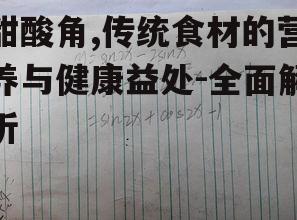 甜酸角,传统食材的营
养与健康益处-全面解
析
= sin2x + cos2x - 1